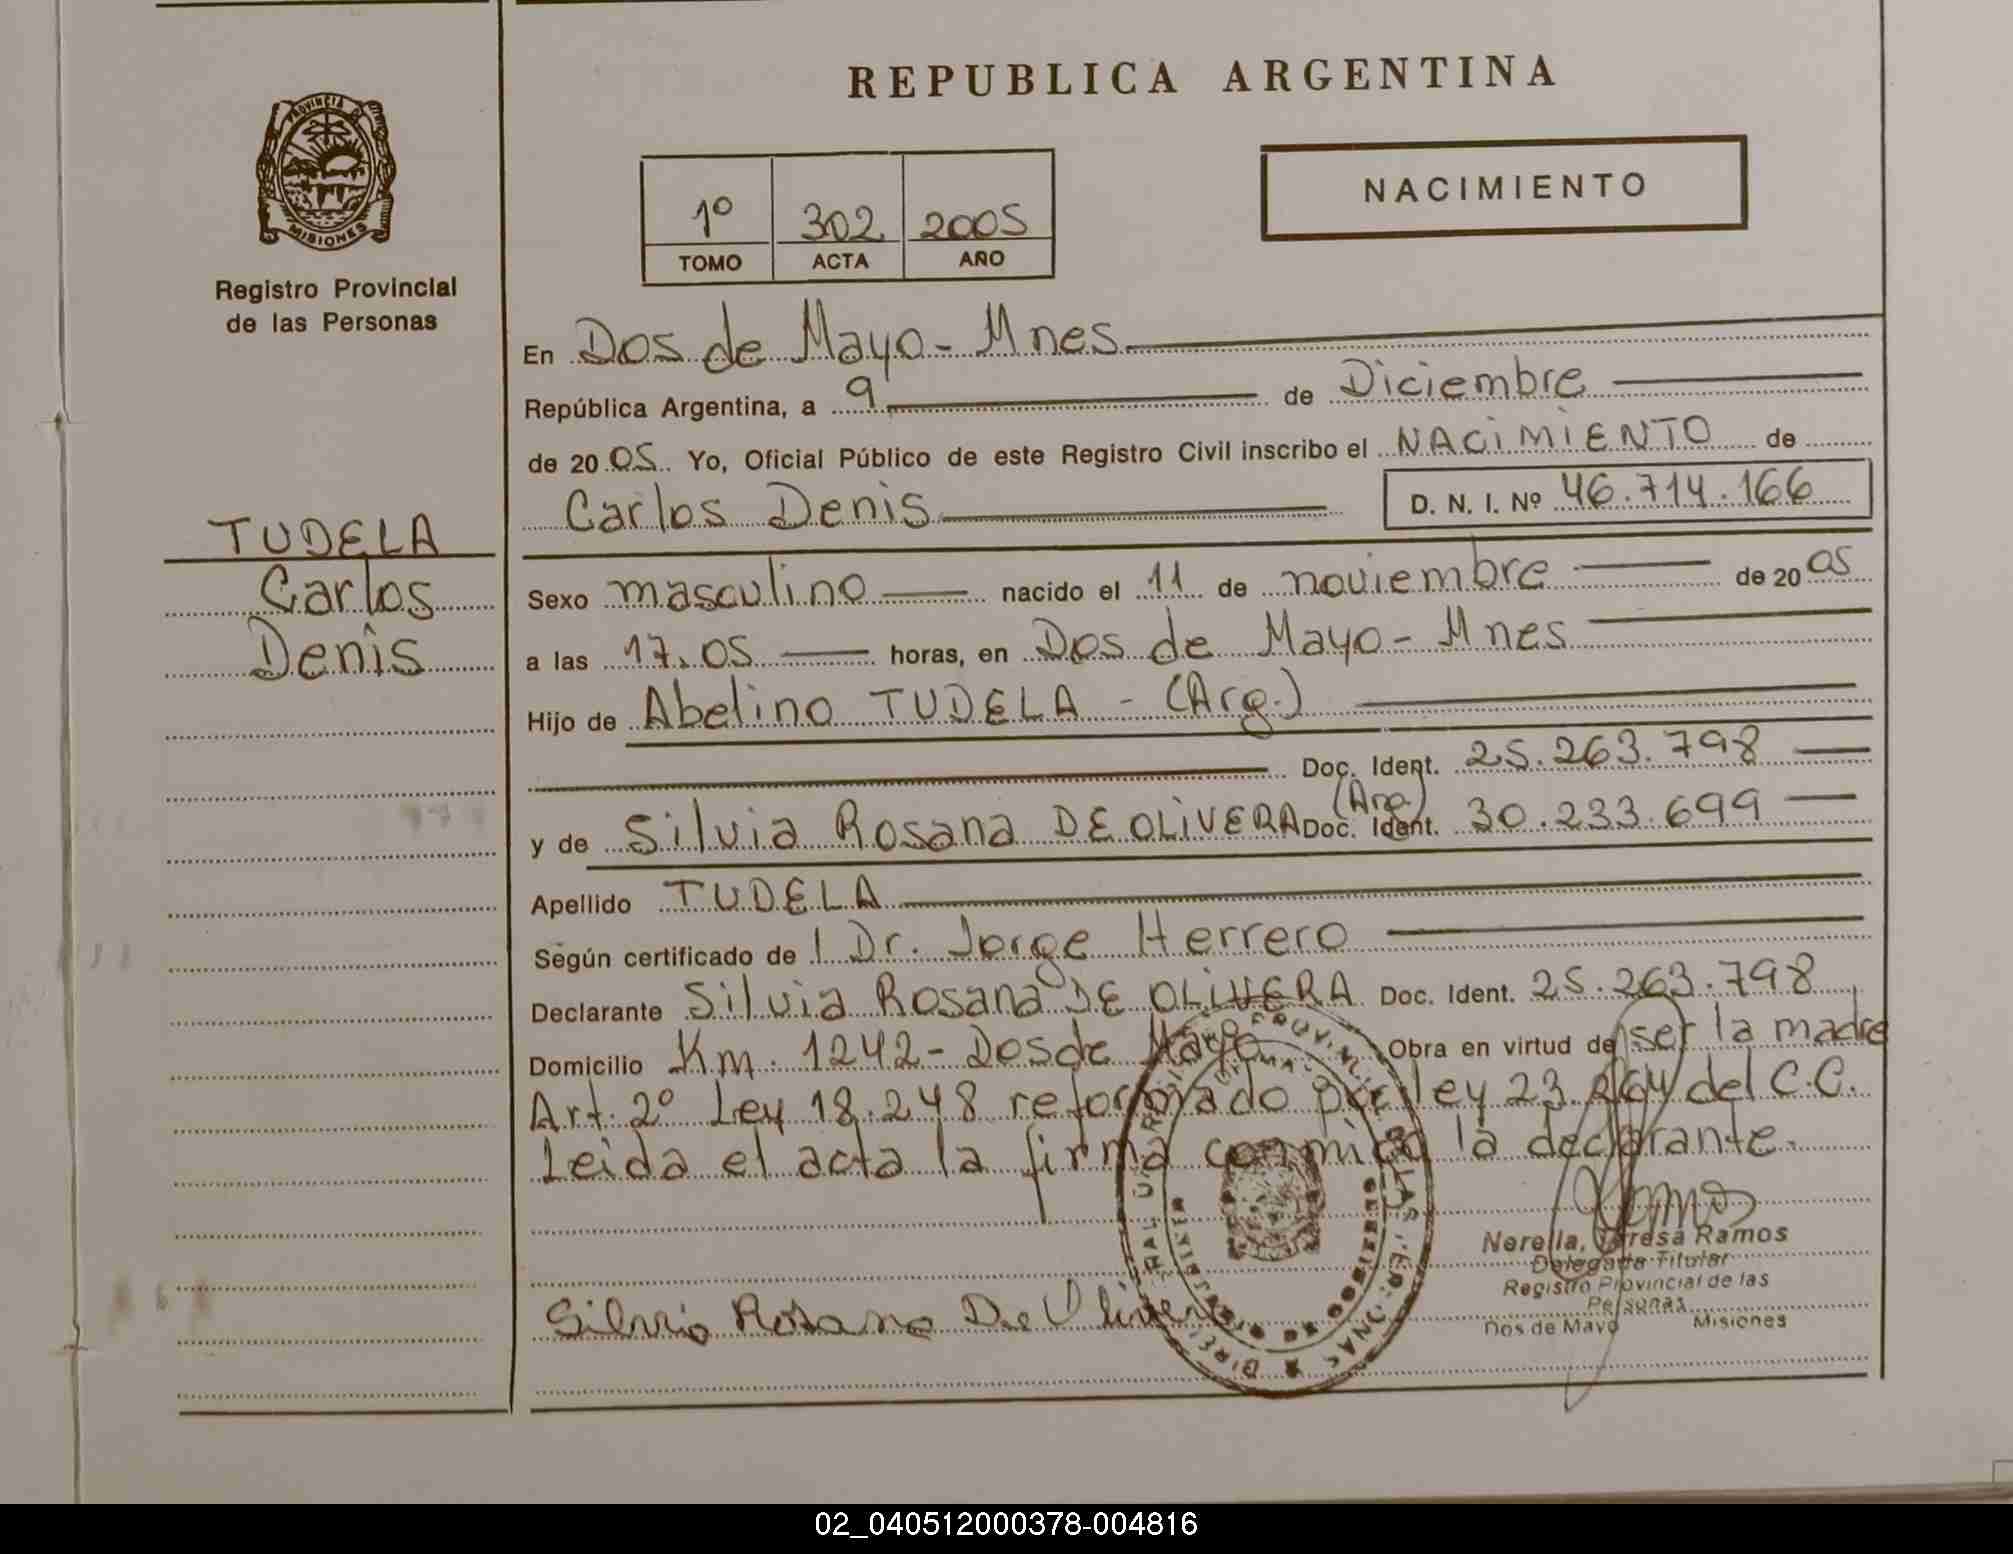 REPUBLICA ARGENTINA
PROVINCIA DE
MISIONES
Registro Provincial
de las Personas
1º 302 2005
TOMO ACTA AÑO
NACIMIENTO
En Dos de Mayo - Mnes
República Argentina, a 9 de Diciembre
de 2005 Yo, Oficial Público de este Registro Civil inscribo el NACIMIENTO de
Carlos Denis D. N. I. Nº 46.714.166
TUDELA
Carlos
Denis
Sexo masculino nacido el 11 de noviembre de 2005
a las 17.05 horas, en Dos de Mayo - Mnes
Hijo de Abelino TUDELA - (Arg.)
Doc. Ident. 25.263.798
y de Silvia Rosana DE OLIVERA (Arg.) Doc. Ident. 30.233.699
Apellido TUDELA
Según certificado de l Dr. Jorge Herrero
Declarante Silvia Rosana DE OLIVERA Doc. Ident. 25.263.798
Domicilio Km. 1242 - Desde Mayo Obra en virtud de ser la madre
Art. 2º Ley 18.248 reformado por ley 23.264 del C.C.
Leida el acta la firma conmigo la declarante.
Norella, Teresa Ramos
Delegada Titular
Registro Provincial de las
Personas
Dos de Mayo Misiones
Silvia Rosana De Olivera
02_040512000378-004816